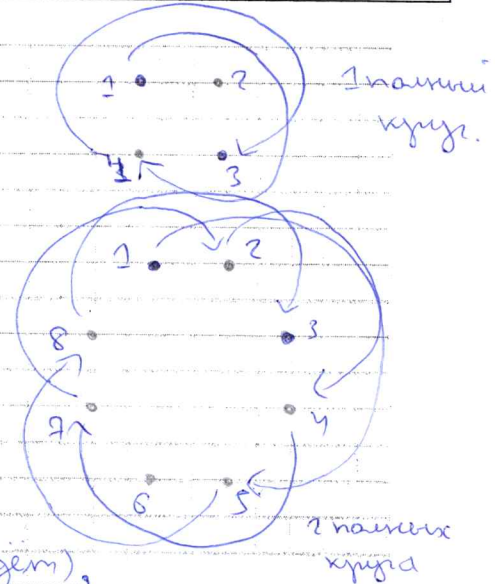 1 2
1 полный
круг.
4 3
1 2
8 3
7 4
6 5
2 полных
круга
дет),